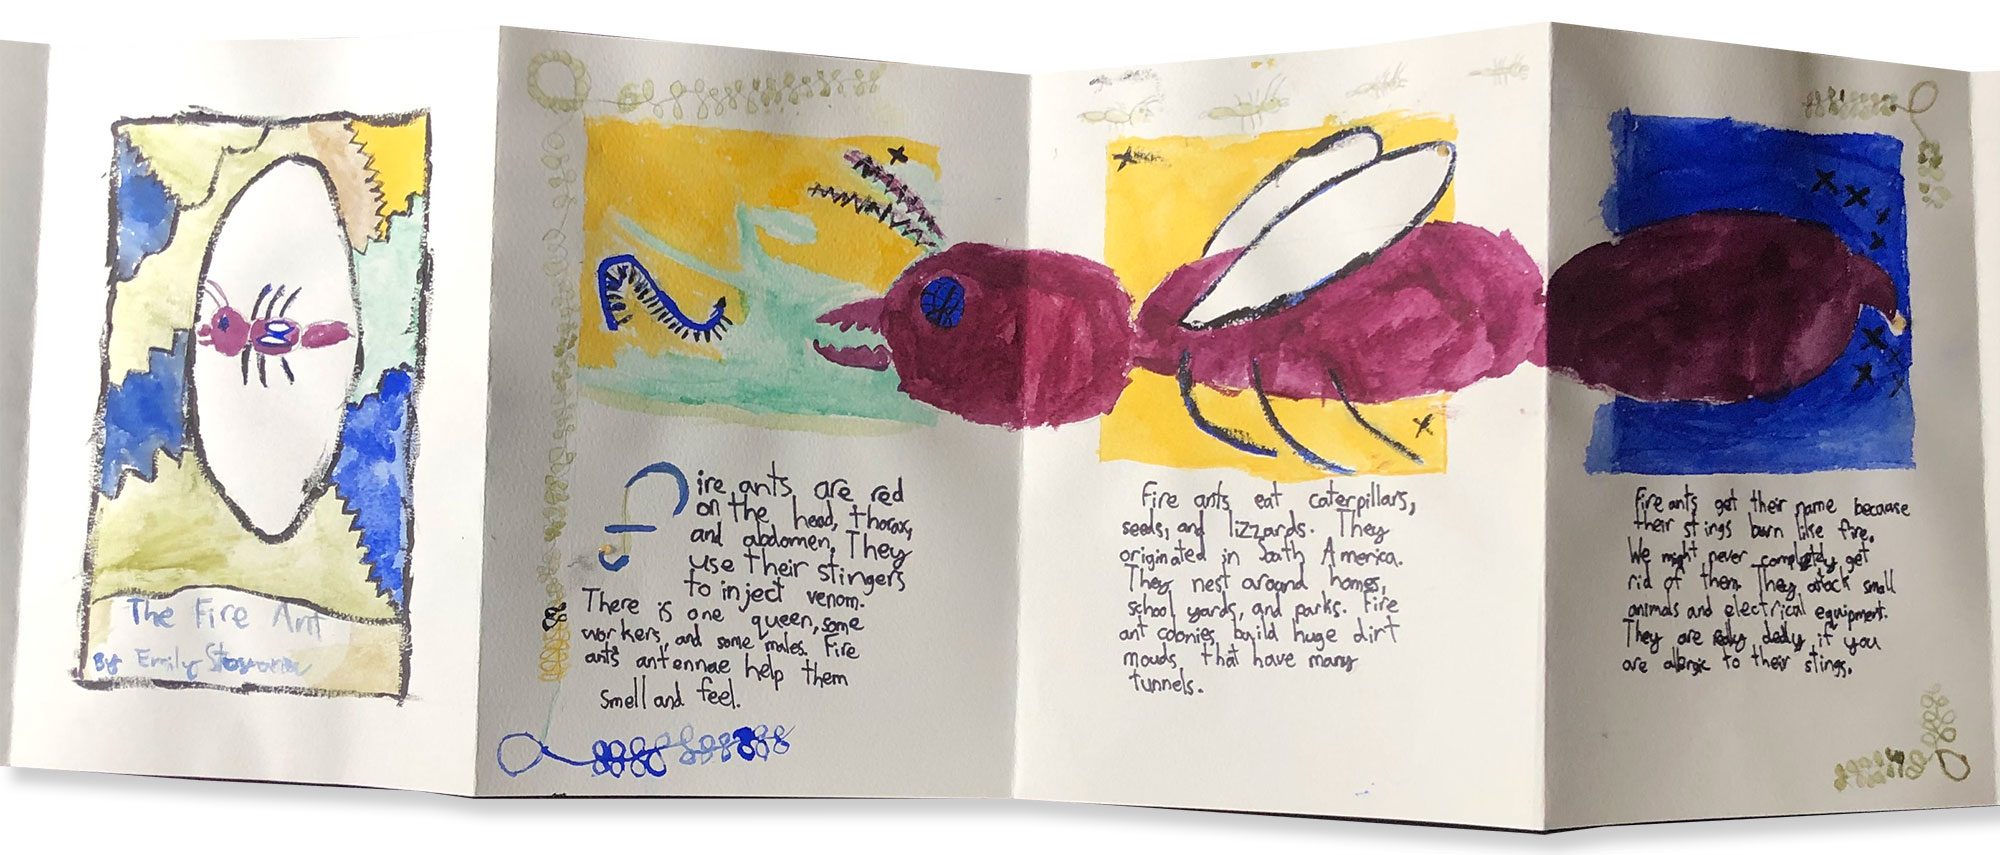 The Fire Ant
By Emily
Fire ants are red
on the head, thorax,
and abdomen. They
use their stingers
to inject venom.
There is one queen, some
workers, and some males. Fire
ants antennae help them
smell and feel.
Fire ants eat caterpillars,
seeds, and lizzards. They
originated in South America.
They nest around homes,
school yards, and parks. Fire
ant colonies build huge dirt
mouds, that have many
tunnels.
Fire ants get their name because
their stings burn like fire.
We might never completely get
rid of them. They attack small
animals and electrical equipment.
They are dedly if you
are to their stings.